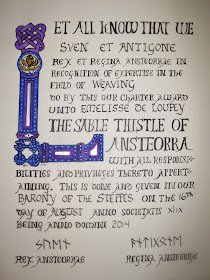 LET ALL KNOW THAT WE
SVEN ET ANTIGONE
REX ET REGINA ANSTEORRAE IN
RECOGNITION OF EXPERTISE IN THE
FIELD OF WEAVING
DO BY THIS OUR CHARTER AWARD
UNTO EMELISSE DE LOUPEY
THE SABLE THISTLE OF
ANSTEORRA
WITH ALL RESPONSI-
BILITIES AND PRIVILEGES THERETO APPERT-
AINING. THIS IS DONE AND GIVEN IN OUR
BARONY OF THE STEPPES ON THE 16TH
DAY OF AUGUST ANNO SOCIETATIS XLIX
BEING ANNO DOMINI 2014
REX ANSTEORRAE REGINA ANSTEORRAE